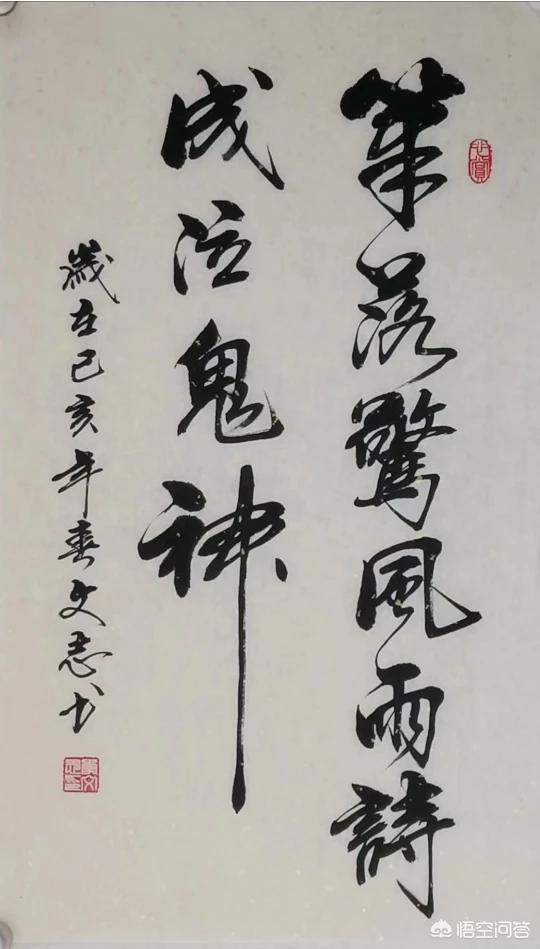 筆落驚風雨詩
成泣鬼神
歲在己亥年春文志书
悟空问答